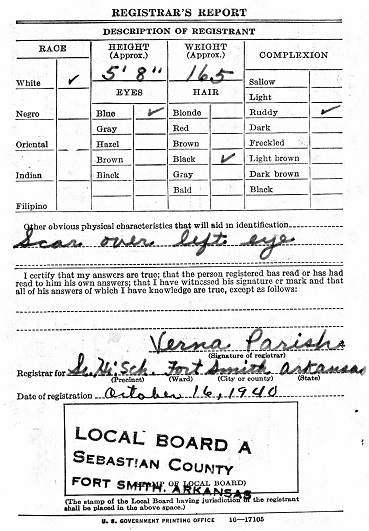 REGISTRAR'S REPORT
DESCRIPTION OF REGISTRANT
RACE HEIGHT (Approx.) WEIGHT (Approx.) COMPLEXION
White ✓ 5' 8" 165 Sallow
EYES HAIR Light
Negro Blue ✓ Blonde Ruddy ✓
Gray Red Dark
Oriental Hazel Brown Freckled
Brown Black ✓ Light brown
Indian Black Gray Dark brown
Bald Black
Filipino
Other obvious physical characteristics that will aid in identification
Scar over left eye
I certify that my answers are true; that the person registered has read or has had
read to him his own answers; that I have witnessed his signature or mark and that
all of his answers of which I have knowledge are true, except as follows:
Verna Parish
(Signature of registrar)
Registrar for Sr. Hi. Sch. Fort Smith Arkansas
(Precinct) (Ward) (City or county) (State)
Date of registration October 16, 1940
LOCAL BOARD A
SEBASTIAN COUNTY
FORT SMITH, ARKANSAS
OF LOCAL BOARD)
(The stamp of the Local Board having jurisdiction of the registrant
shall be placed in the above space.)
U. S. GOVERNMENT PRINTING OFFICE 16—17105